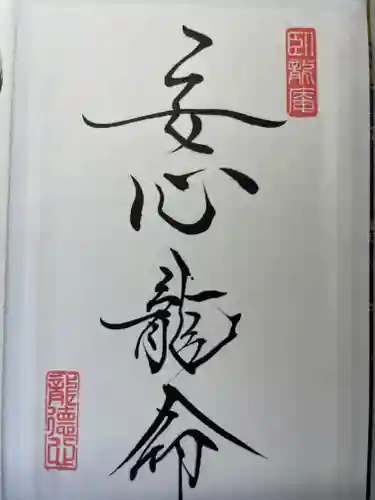 安心龍命
臥龍庵
龍德